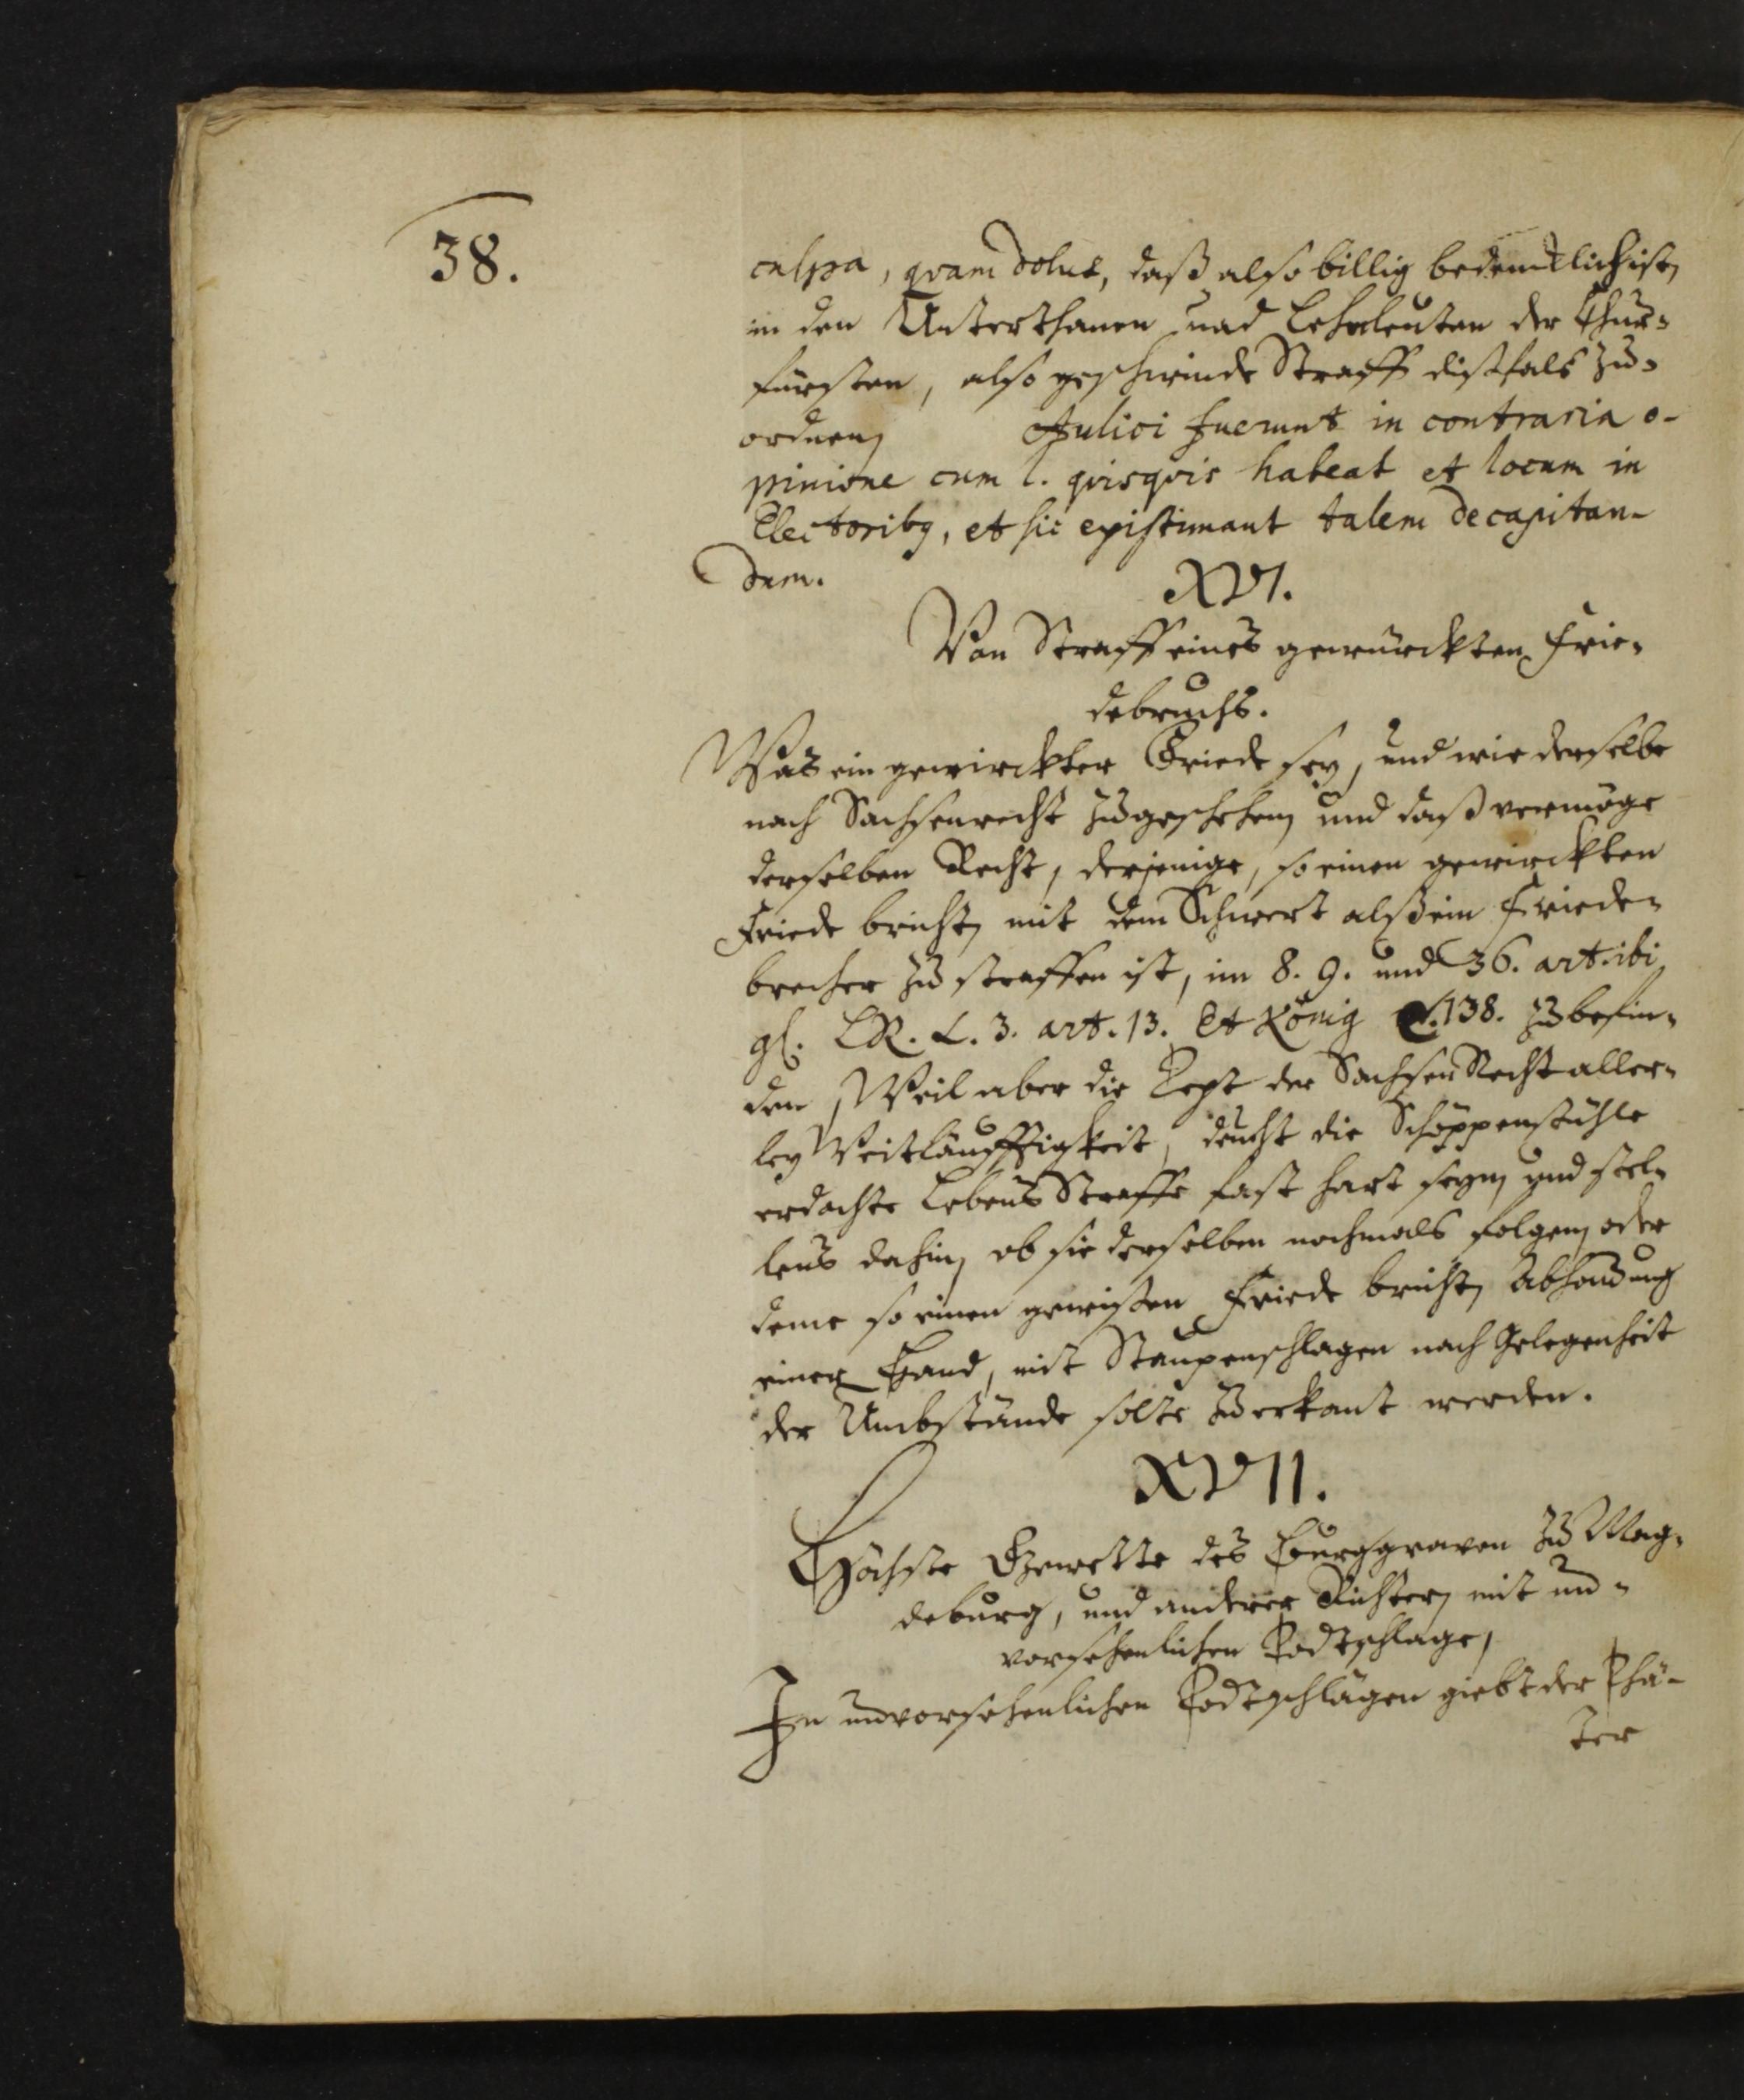 38.
culpa, qvam dolus, daß also billig bedencklich ist,
in den Unterthanen und Lehnleuten der Chur-
fürsten, also geschwinde Straff dißfals zu-
ordnen, Aulici fuerunt in contraria o-
pinione cum l. qvisqvis habeat et locum in
Electoribq, et sic existimant talem decapitan-
dum.
XVI.
Von Straff eines gewürckten Frie-
debruchs.
Was ein gewirckter Friede sey, und wie derselbe
nach Sachsenrecht zugeschehen, und daß vermöge
derselben Recht, derjenige, so einen gewirckten
Friede bricht, mit dem Schwert alß ein Frieden-
brecher zu straffen ist, im 8. 9. und 36. art. ibi
gl. LR. L. 3. art. 13. Et König 138. zubefin-
den, Weil aber die Text der Sachsen Recht aller-
ley Weitläufftigkeit, deucht die Schöppenstühle
erdachte Lebens Straffe fast hart seyn, und stel-
lens dahin, ob sie derselben nochmals folgen, oder
deme so einen gewissen Friede bricht, Abhauung
einer Hand, mit Staupenschlagen nach Gelegenheit
der Umbstände solte zuerkant werden.
XVII.
Höchste Gewette des Burggraven zu Mag-
deburg, und anderer Richter, mit un-
vorsehenlichen Todtschlage,
In unvorsehenlichen Todtschlägen giebt der Thä-
ter